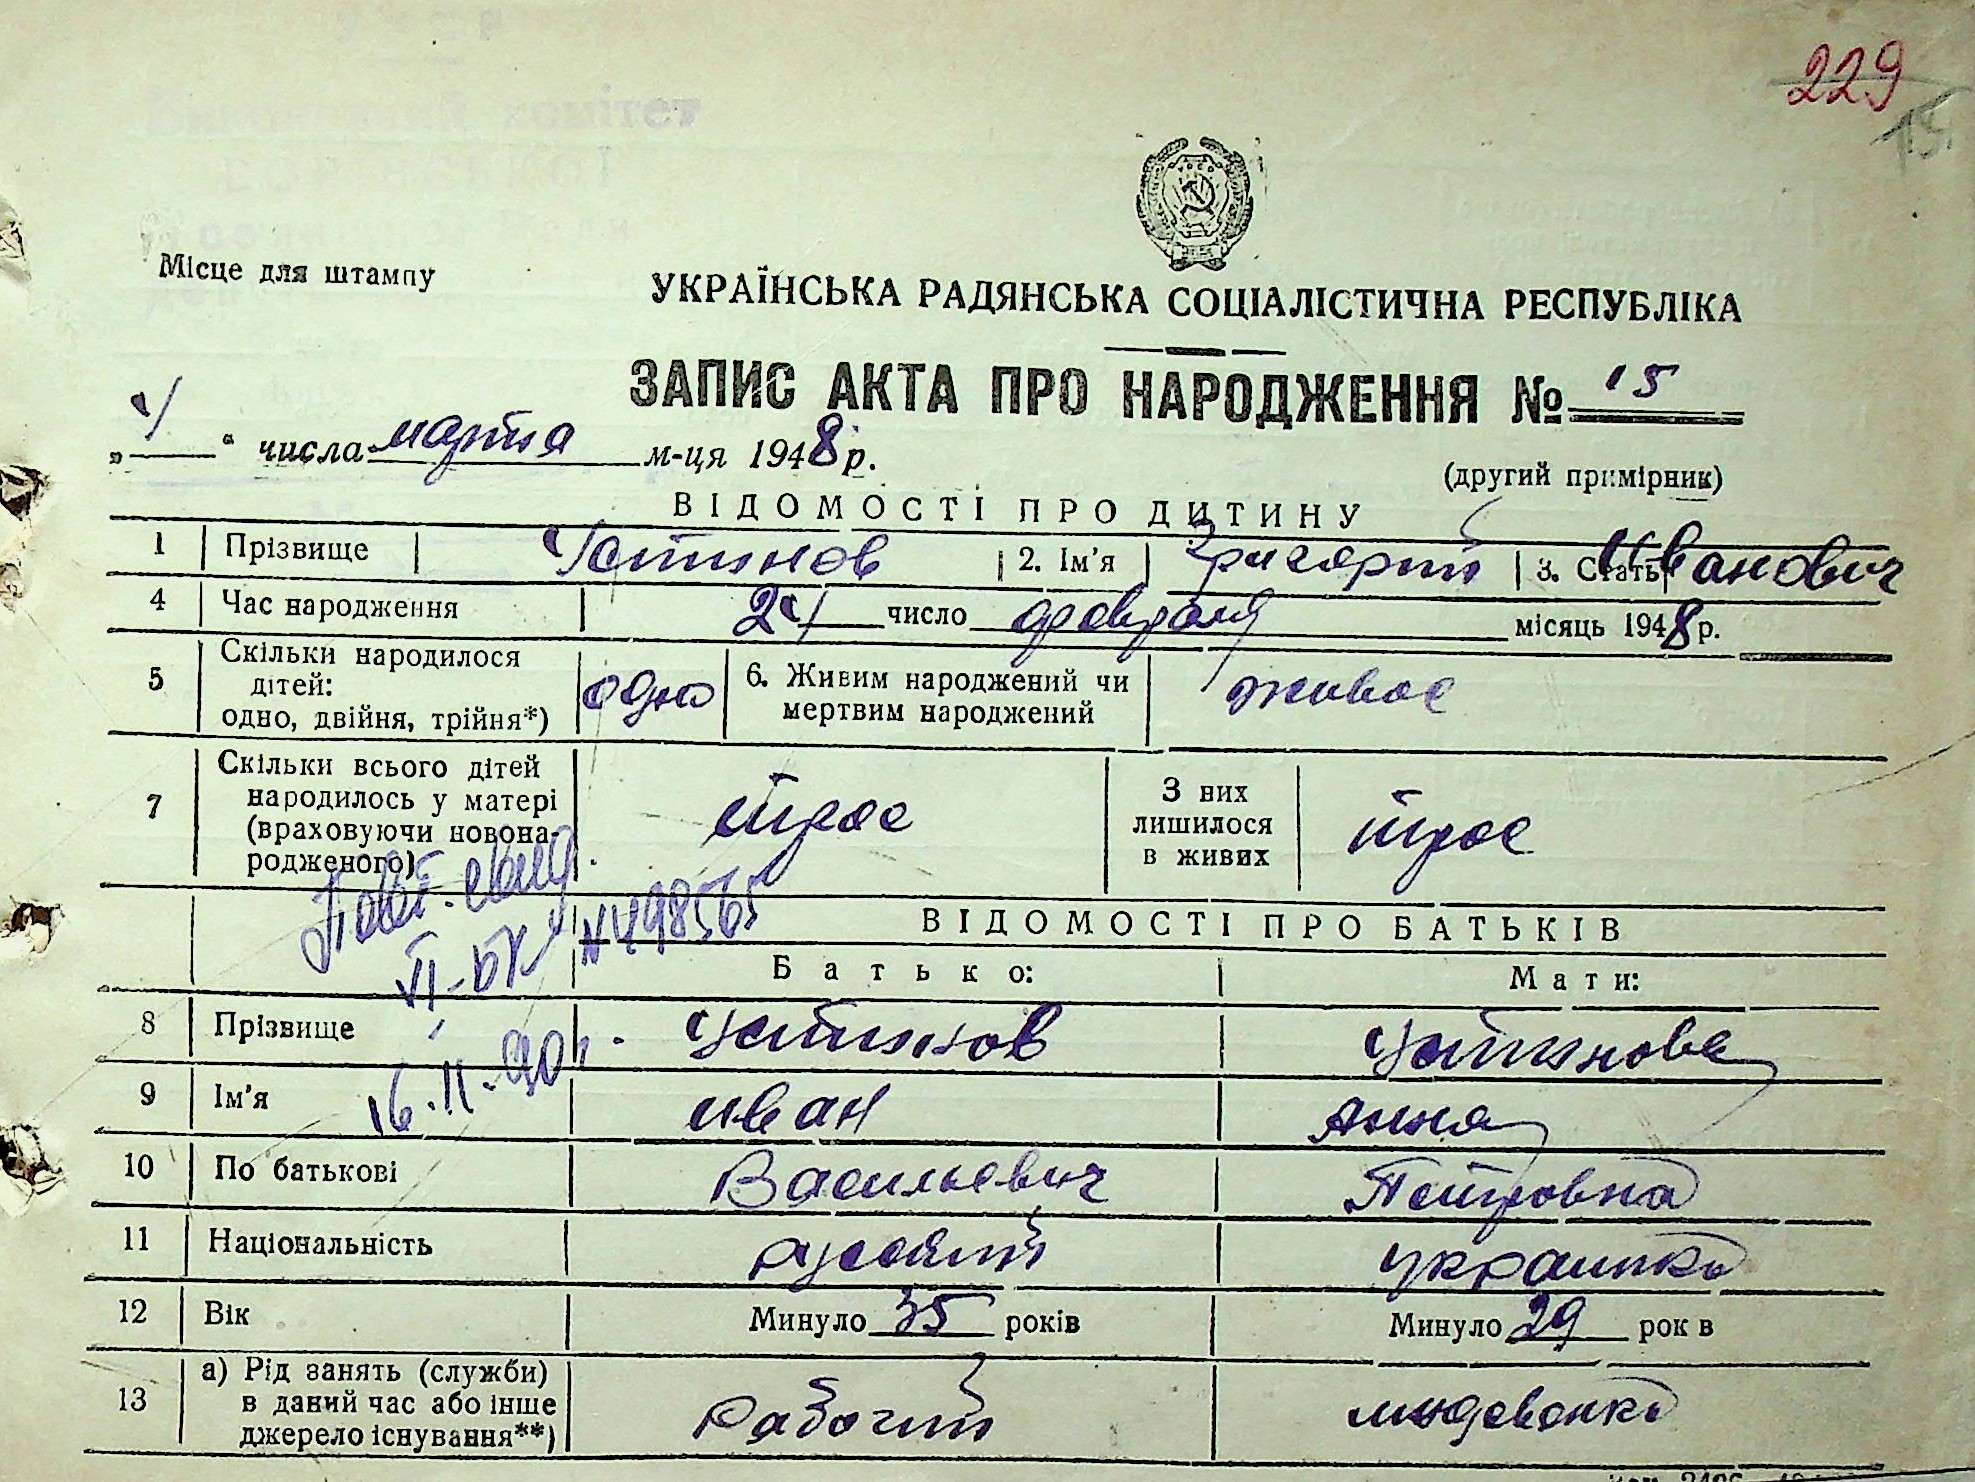 229
15
Місце для штампу
УКРАЇНСЬКА РАДЯНСЬКА СОЦІАЛІСТИЧНА РЕСПУБЛІКА
ЗАПИС АКТА ПРО НАРОДЖЕННЯ № 15
„4“ числа марта м-ця 1948 р.
(другий примірник)
ВІДОМОСТІ ПРО ДИТИНУ
1 Прізвище Устинов 2. Ім'я Григорий 3. Стать Иванович
4 Час народження 24 число февраля місяць 1948 р.
5 Скільки народилося дітей: одно, двійня, трійня*) одно 6. Живим народжений чи мертвим народжений живое
7 Скільки всього дітей народилось у матері (враховуючи новонародженого) трое З них лишилося в живих трое
Повт. свид.
VI-БК N 498565
16.II.90 г.
ВІДОМОСТІ ПРО БАТЬКІВ
Батько: Мати:
8 Прізвище Устинов Устинова
9 Ім'я Иван Анна
10 По батькові Васильевич Петровна
11 Національність русский украинка
12 Вік Минуло 35 років Минуло 29 рок в
13 а) Рід занять (служби) в даний час або інше джерело існування**) Рабочий